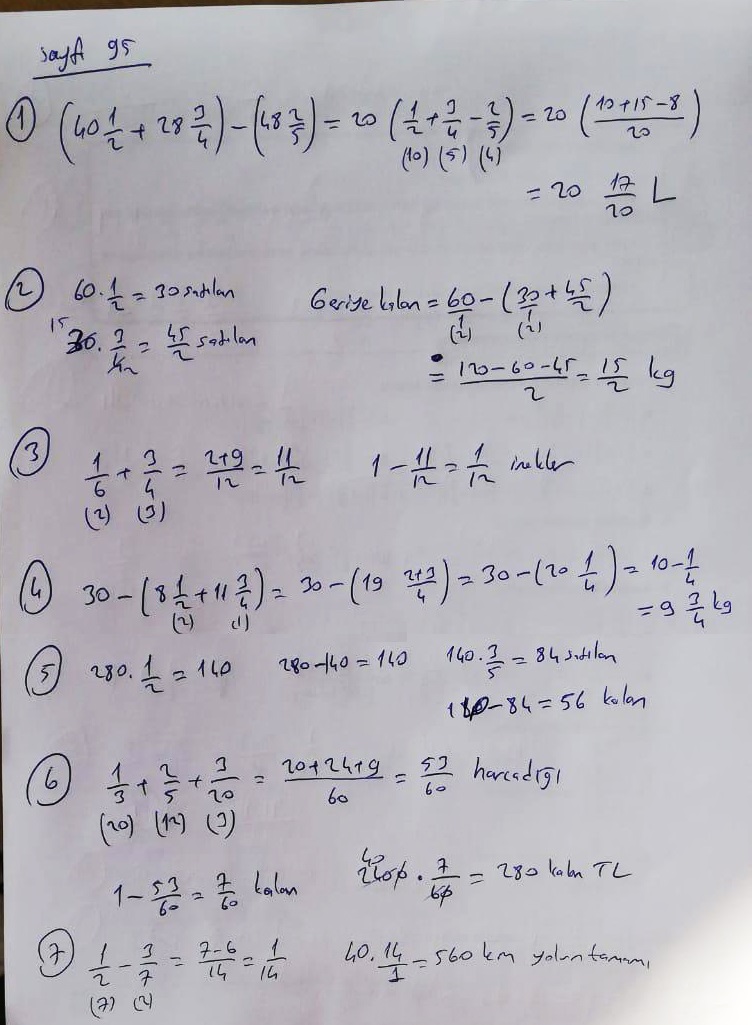 sayfa 95
① (40 1/2 + 28 3/4) - (48 2/5) = 20 (1/2 + 3/4 - 2/5) = 20 (10+15-8 / 20)
(10) (5) (4)
= 20 17/20 L
② 60 . 1/2 = 30 satılan Geriye kalan = 60/1 - (30/1 + 45/2)
(2) (2)
15
30 . 3/4 2 = 45/2 satılan
= 120-60-45 / 2 = 15/2 kg
③ 1/6 + 3/4 = 2+9/12 = 11/12 1 - 11/12 = 1/12 inekler
(2) (3)
④ 30 - (8 1/2 + 11 3/4) = 30 - (19 2+3/4) = 30 - (20 1/4) = 10 - 1/4
(2) (1) = 9 3/4 kg
⑤ 280 . 1/2 = 140 280-140 = 140 140 . 3/5 = 84 satılan
140-84 = 56 kalan
⑥ 1/3 + 2/5 + 3/20 = 20+24+9 / 60 = 53/60 harcadığı
(20) (12) (3)
40
1 - 53/60 = 7/60 kalan 2400 . 7/60 = 280 kalan TL
⑦ 1/2 - 3/7 = 7-6/14 = 1/14 40 . 14/1 = 560 km yolun tamamı
(7) (2)